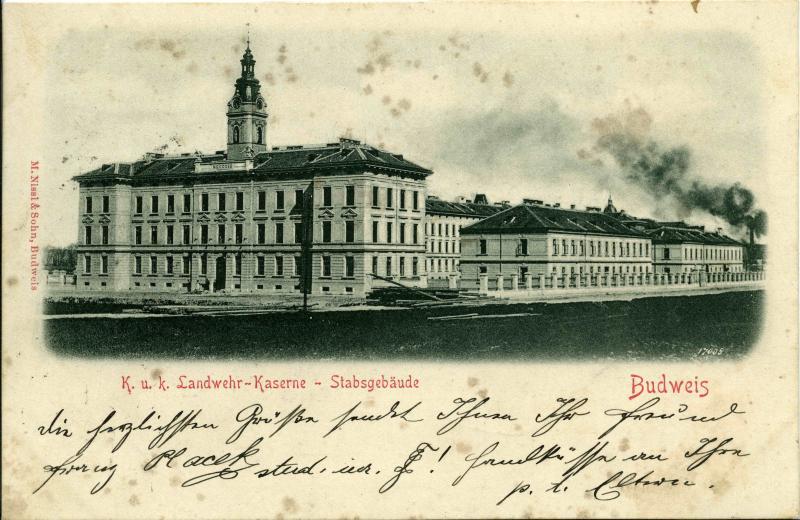 M. Nissl & Sohn, Budweis
17605
K. u. k. Landwehr-Kaserne - Stabsgebäude
Budweis
die herzlichsten Grüße sendet Ihnen Ihr Freund
Franz Placek stud. iur. ! Handküsse an Ihre
p. t. Eltern.